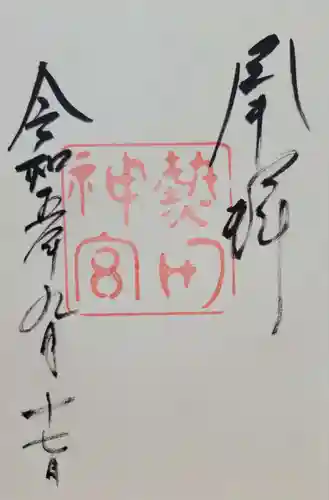 奉拝
熱田神宮
令和五年九月十七日